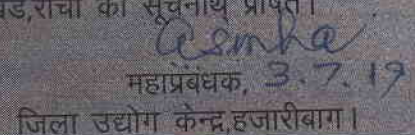 खंड,रांची को सूचनार्थ प्रेषित।
महाप्रबंधक, 3.7.19
जिला उद्योग केन्द्र,हजारीबाग।